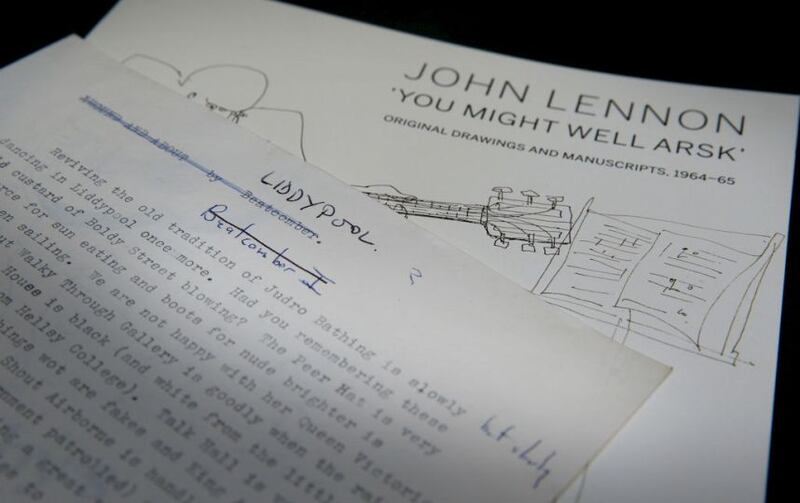 JOHN LENNON
'YOU MIGHT WELL ARSK'
ORIGINAL DRAWINGS AND MANUSCRIPTS, 1964–65
AROUND AND ABOUT by Beatcomber.
LIDDYPOOL.
Beatcomber I
?
Reviving the old tradition of Judro Bathing is slowly but slowly
dancing in Liddypool once more. Had you remembering these
custard of Boldy Street blowing? The Peer Hat is very
for sun eating and boots for nude brighter is
sailing. We are not happy with her Queen Victoria
Walky Through Gallery is goodly when the rain
House is black (and white from the little
Hellsy College). Talk Hall is
wot are fakes and King
Shout Airborne is
patrolled)
a great
to